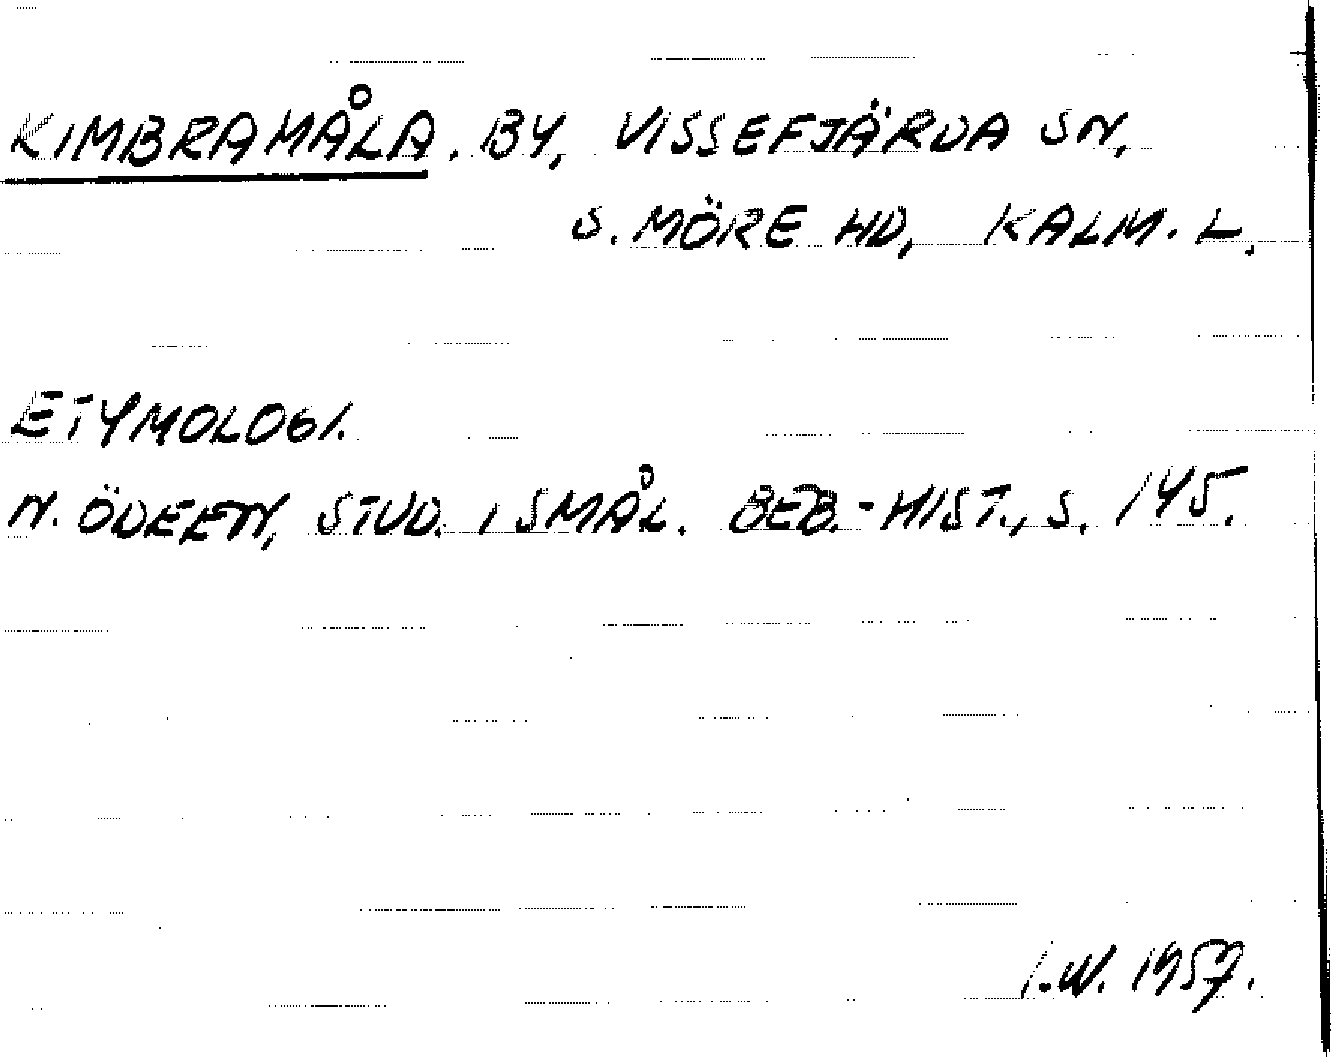 KIMBRAMÅLA. BY, VISSEFJÄRDA SN,
S. MÖRE HD, KALM. L.
ETYMOLOGI.
N. ÖDEEN, STUD. I SMÅL. BEB.-HIST., S. 145.
I.W. 1957.